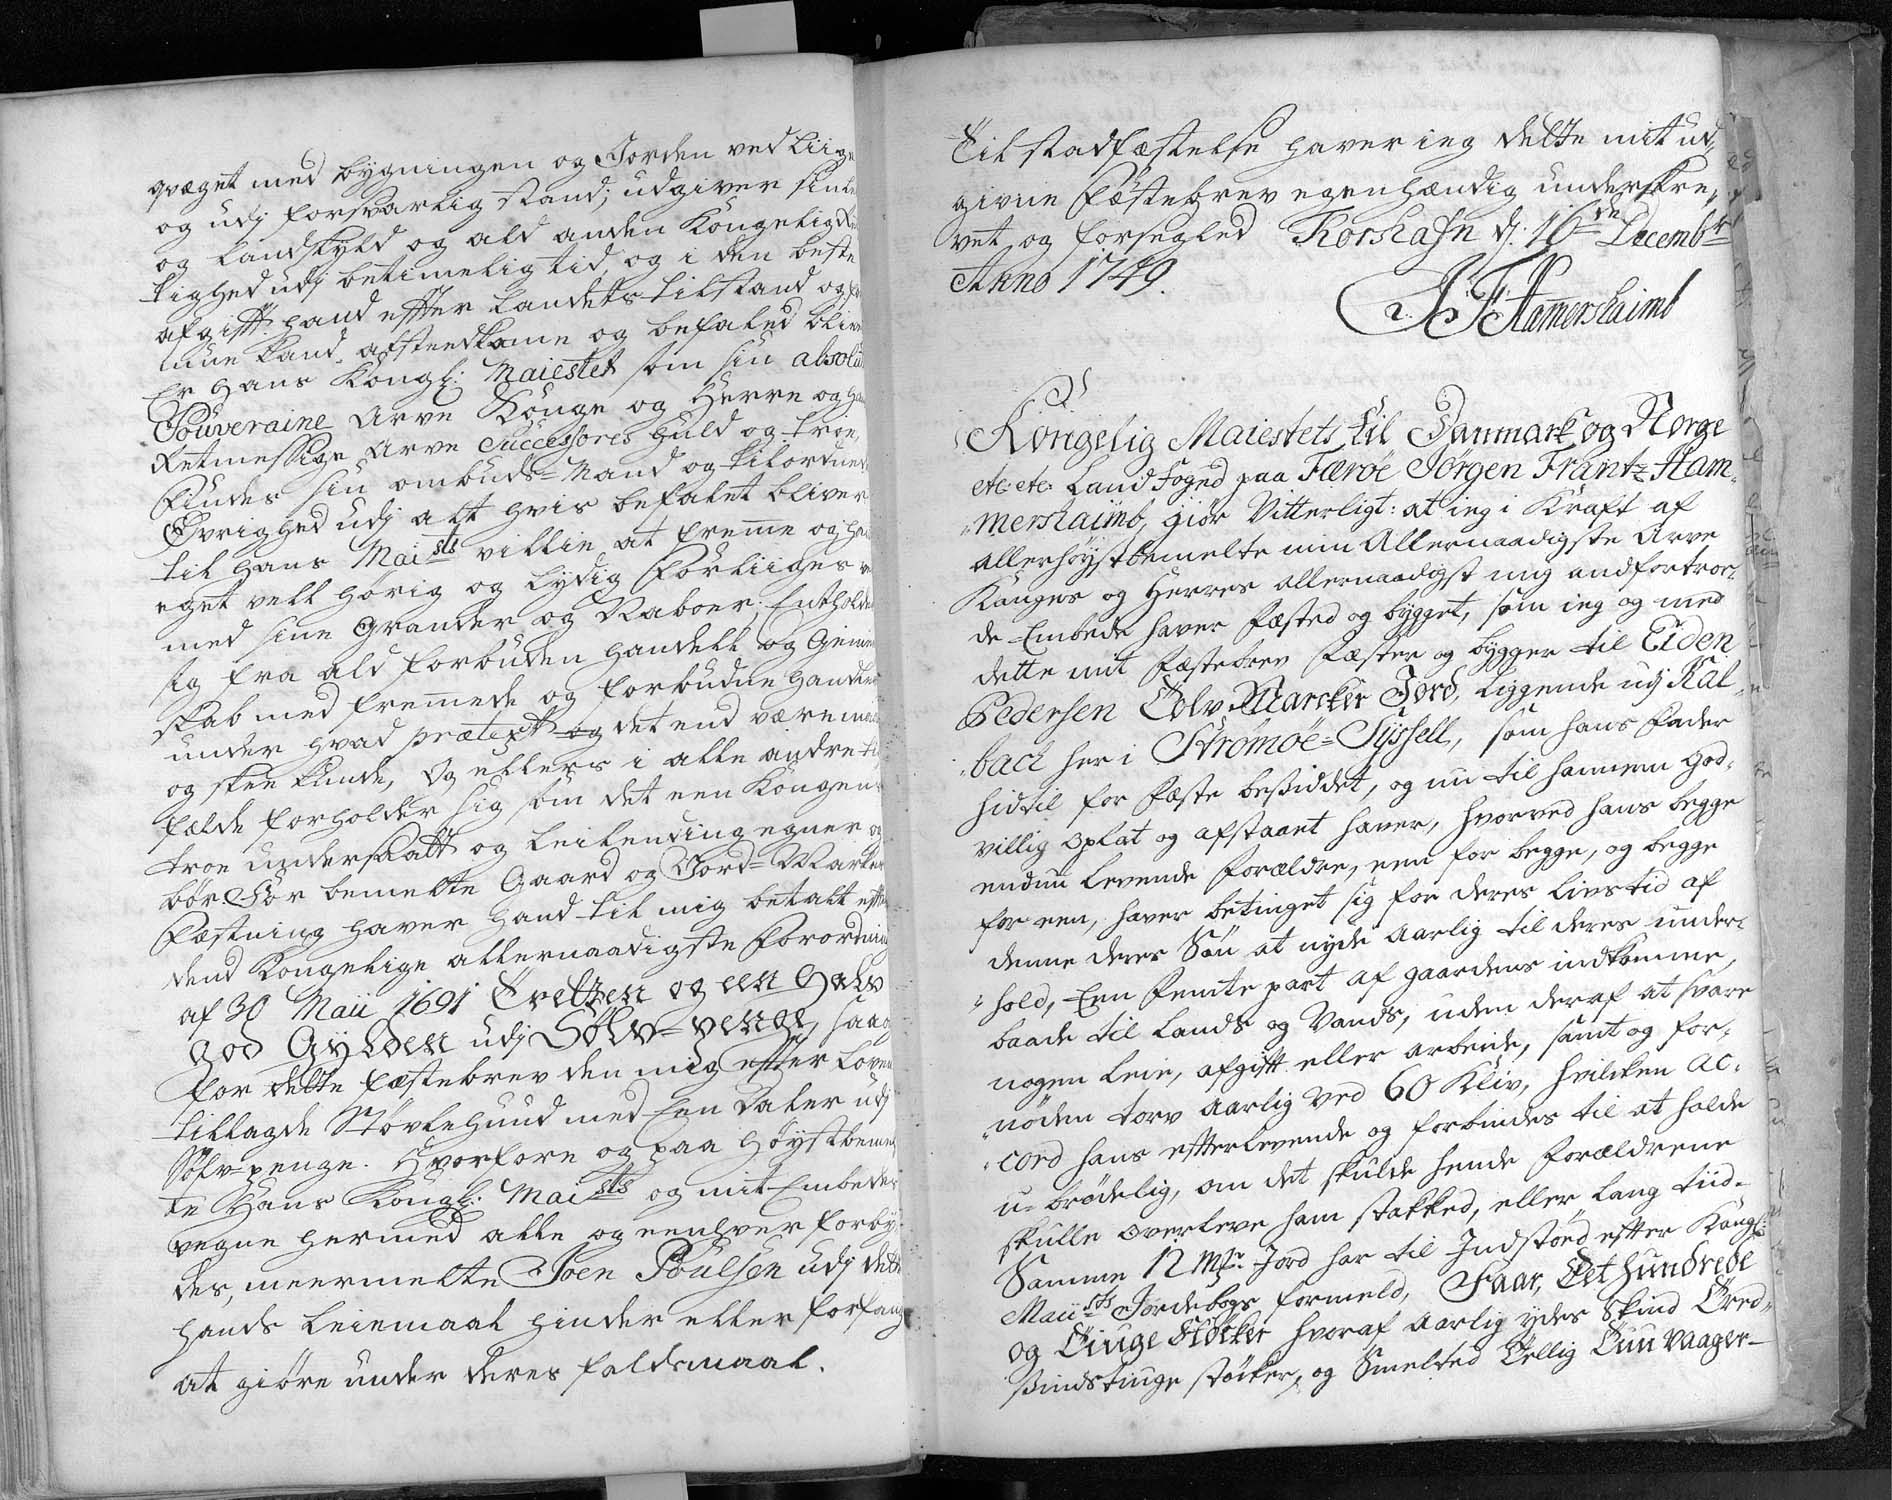 qvæget med bygningen og Jorden ved Liige
og udj forsvarlig stand; udgiver sin
og Landskyld og ald anden Kongelig
tighed udj betimelig tid, og i den beste
afgift hand effter Landets tilstand og
kand afstedkome og befaled blive
Er hans Kongl: Maiestet som sin absolut
Souveraine Arve Konge og Herre og
Retmessige Arve Successores huld og troe,
Findes sin ombuds-Mand og tilordnede
Øvrighed udj alt hvis befalet bliver
til hans Mai:sts villie at freme og
eget vell hørig og lydig Forliiges
med sine Grander og Naboer; Entholder
sig fra ald forbuden handell og
skab med fremede og forbudne handler
under hvad prætext det end være
og skee kunde, Og ellers i alle andre til-
fælde forholder sig, som det een Kongens
troe undersaatt og Leilending egner og
bør. For bemelte Gaard og Jord-Marker
Fæstning haver hand til mig betalt efter
dend Kongelige allernaadigste Forordning
af 30 Maii 1691 Tretten og een halv
god Gylden udj Sølv-penge, saa og
for dette fæstebrev den mig effter Loven
tillagde Støvlehund med Een Daler udj
Sølv-penge. Hvorfore og paa Høystbemel-
te Hans Kongl: Mai:sts og mit Embedes
vegne hermed alle og eenhver forby-
des, meermelte Joen Poulsen udj dette
hands Leiemaal hinder eller forfang
at giøre under deres faldsmaal.
Til stadfæstelse haver ieg dette mit ud-
givne Fæstebrev egenhændig underskre-
vet og forsegled Thorshafn dj: 16de Decembr
Anno 1749.
J F Hamershaimb
Kongelig Maiestets til Danmark og Norge
etc: etc: Land foged paa Færøe Jørgen Frantz Ham-
mershaimb, giør Vitterligt: at ieg i Kraft af
allerhøystbemelte min Allernaadigste Arve
Konges og Herres allernaadigst mig andfortroe-
de Embede haver fæsted og bygget, som ieg og med
dette mit Fæstebrev Fæster og bygger til Eiden
Pedersen Tolv Marcker Jord, liggende udj Kal-
bach her i Strømøe-Syssell, som hans Fader
hidtil for Fæste besiddet, og nu til hannem god-
villig oplat og afstaaet haver, hvorved hans begge
endnu levende Forældre, een for begge, og begge
for een, haver betinget sig for deres livs tid af
denne deres Søn at nyde Aarlig til deres under-
hold, Een Femte part af gaardens indkomme,
baade til Lands og Vands, uden deraf at svare
nogen Leie, afgift eller arbeide, samt og for-
nøden torv Aarlig ved 60 Kliv, hvilcken Ac-
cord hans efterlevende og forbindes til at holde
u-brødelig, om det skulde hende Forældrene
skulle overleve ham stakked, eller lang tiid.
Samme 12 Mr: Jord har til Indstød efter Kongl:
Maii:sts Jordebogs formeld, Faar, Et hundrede
og Tiuge Støcker hvoraf Aarlig ydes Skind Tred-
sindstiuge støcker, og Smelted Tellig Tuu vaager-